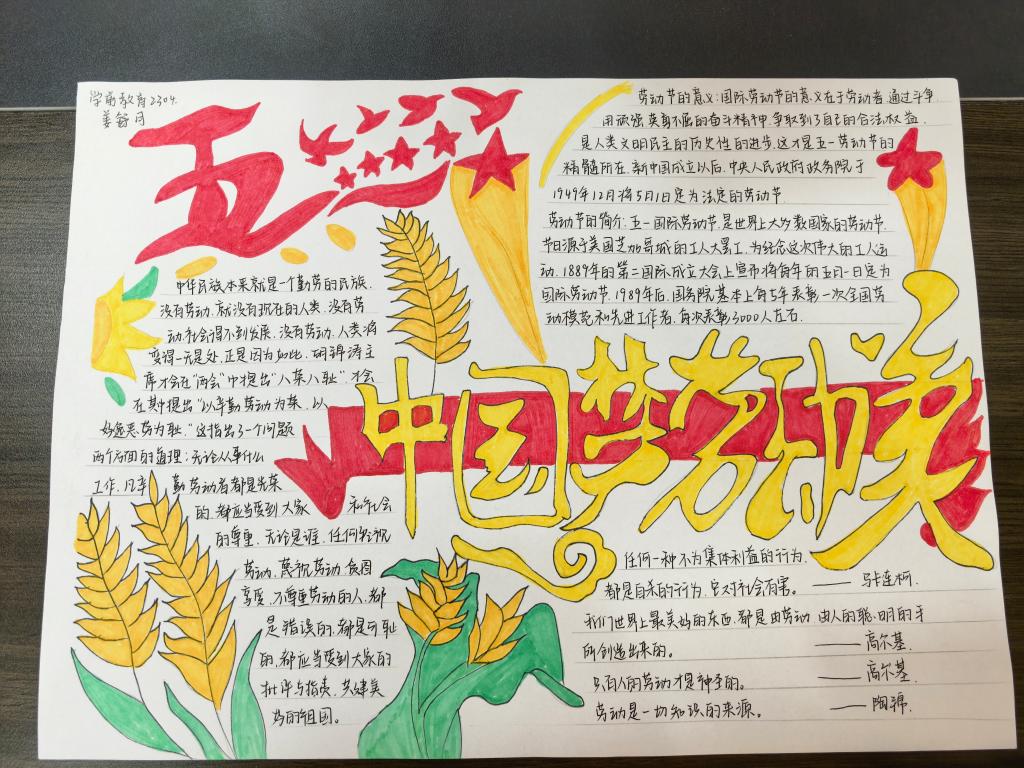 学前教育2304.
姜舒月
五一
劳动节的意义:国际劳动节的意义在于劳动者通过斗争,
用顽强、英勇不屈的奋斗精神,争取到了自己的合法权益,
是人类文明民主的历史性的进步,这才是五一劳动节的
精髓所在。新中国成立以后,中央人民政府政务院于
1949年12月将5月1日定为法定的劳动节.
劳动节的简介:五一国际劳动节,是世界上大多数国家的劳动节.
节日源于美国芝加哥城的工人大罢工,为纪念这次伟大的工人运
动,1889年的第二国际成立大会上宣布将每年的五月一日定为
国际劳动节.1989年后,国务院基本上每5年表彰一次全国劳
动模范和先进工作者,每次表彰3000人左右.
中华民族本来就是一个勤劳的民族,
没有劳动,就没有现在的人类,没有劳
动,社会得不到发展,没有劳动,人类将
变得一无是处,正是因为如此,胡锦涛主
席才会在"两会"中提出"八荣八耻",才会
在其中提出"以辛勤劳动为荣,以
好逸恶劳为耻,"这指出了一个问题
两个方面的道理:无论从事什么
工作,凡辛勤劳动者都是光荣
的,都应当受到大家和社会
的尊重,无论是谁,任何轻视
劳动,蔑视劳动,贪图
享受,不尊重劳动的人,都
是错误的,都是可耻
的,都应当受到大家的
批评与指责,共建美
好的祖国。
中国梦 劳动美
任何一种不为集体利益的行为,
都是自杀的行为,它对社会有害。 —— 马卡连柯.
我们世界上最美好的东西,都是由劳动、由人的聪明的手
所创造出来的。 —— 高尔基.
只有人的劳动才是神圣的。 —— 高尔基.
劳动是一切知识的来源。 —— 陶铸.